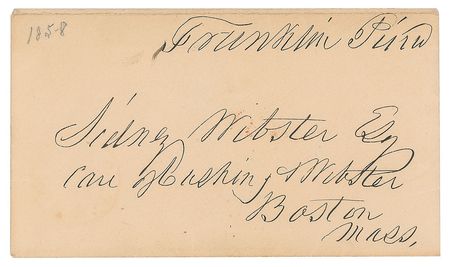 1858
Franklin Pierce
Sidney Webster Esq
care of Cushing & Webster
Boston
Mass.